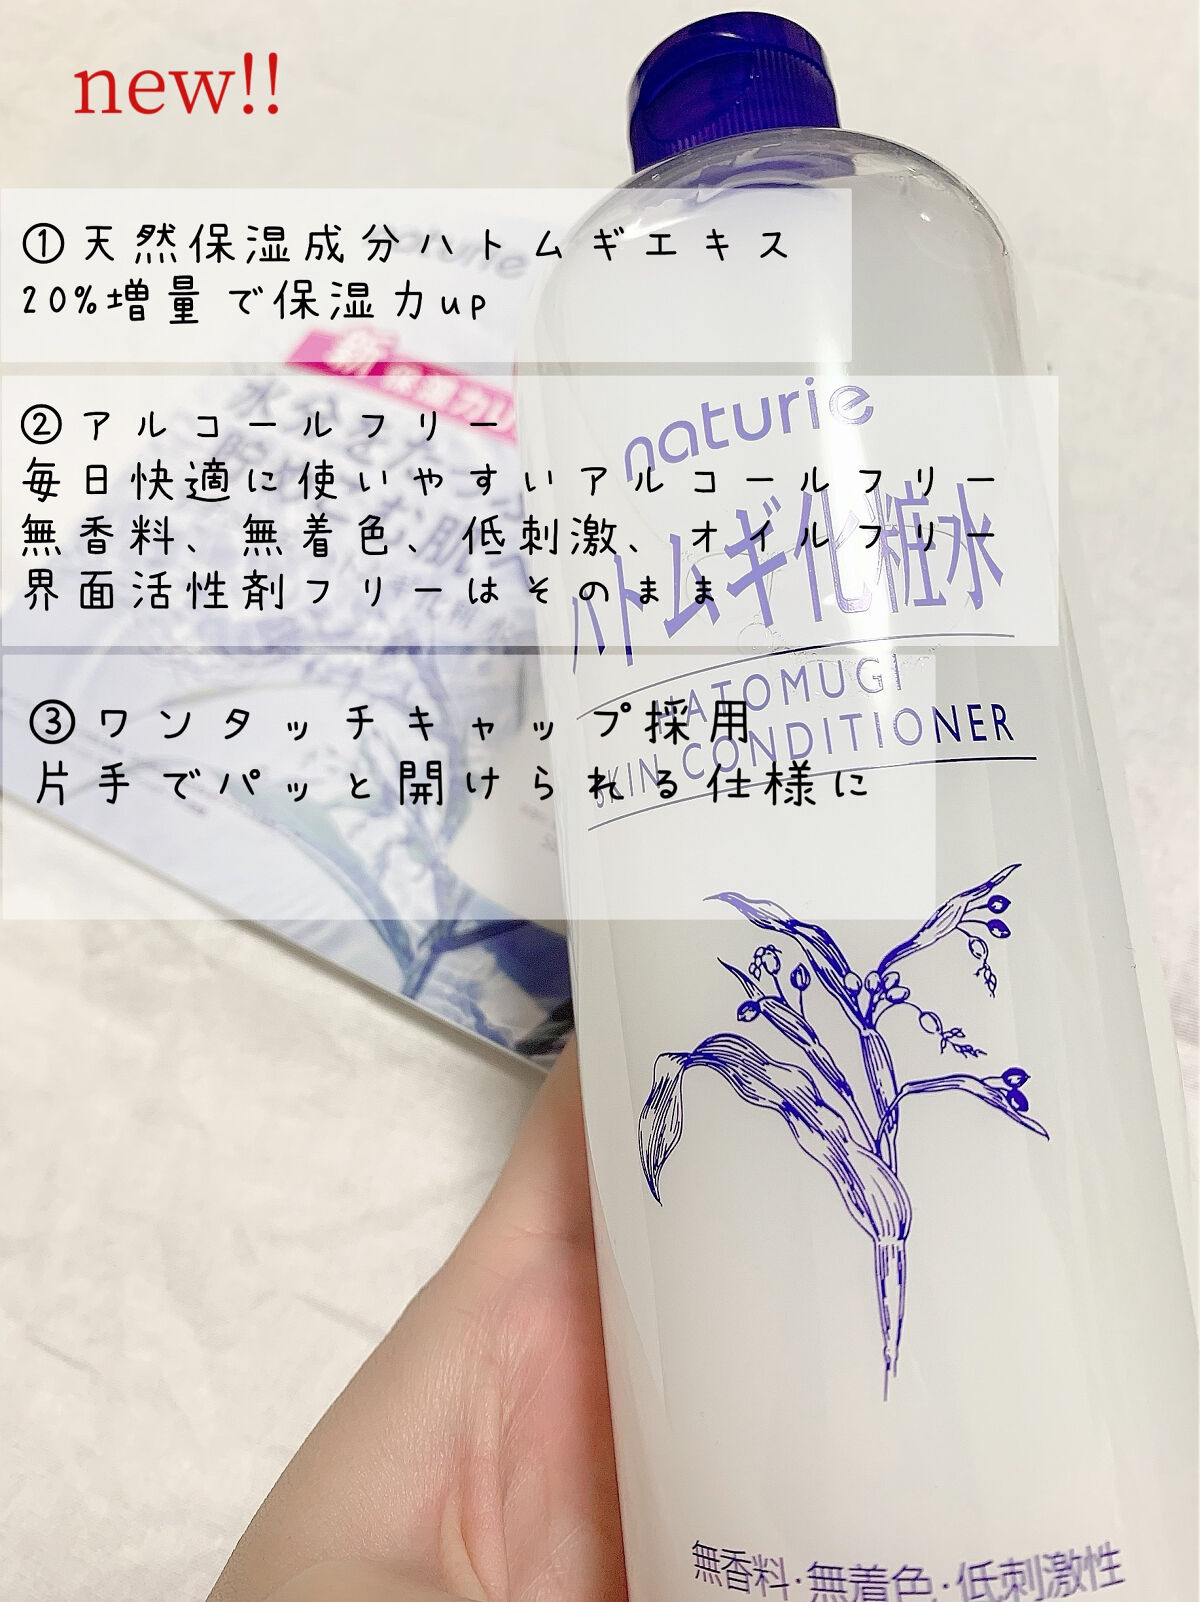 new!!
①天然保湿成分ハトムギエキス
20%増量で保湿力up
②アルコールフリー
毎日快適に使いやすいアルコールフリー
無香料、無着色、低刺激、オイルフリー
界面活性剤フリーはそのまま
③ワンタッチキャップ採用
片手でパッと開けられる仕様に
naturie
ハトムギ化粧水
HATOMUGI
SKIN CONDITIONER
無香料・無着色・低刺激性
naturie
水分をた